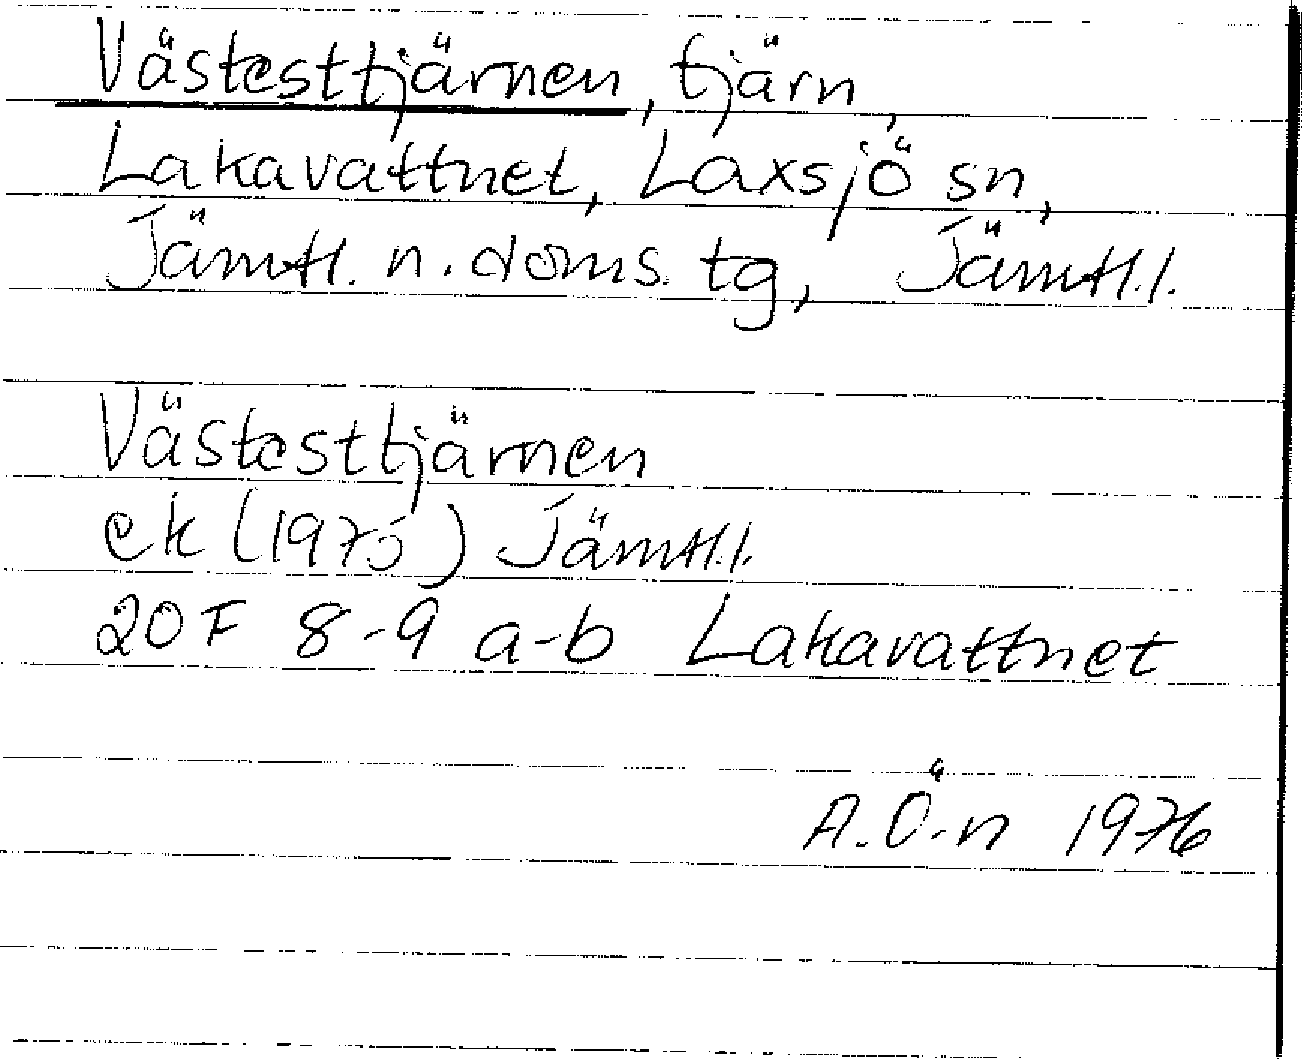 Västesttjärnen, tjärn,
Lakavattnet, Laxsjö sn,
Jämtl. n. doms. tg, Jämtl.l.
Västesttjärnen
ek (1975) Jämtl.l.
20 F 8-9 a-b Lakavattnet
A.Ö-n 1976